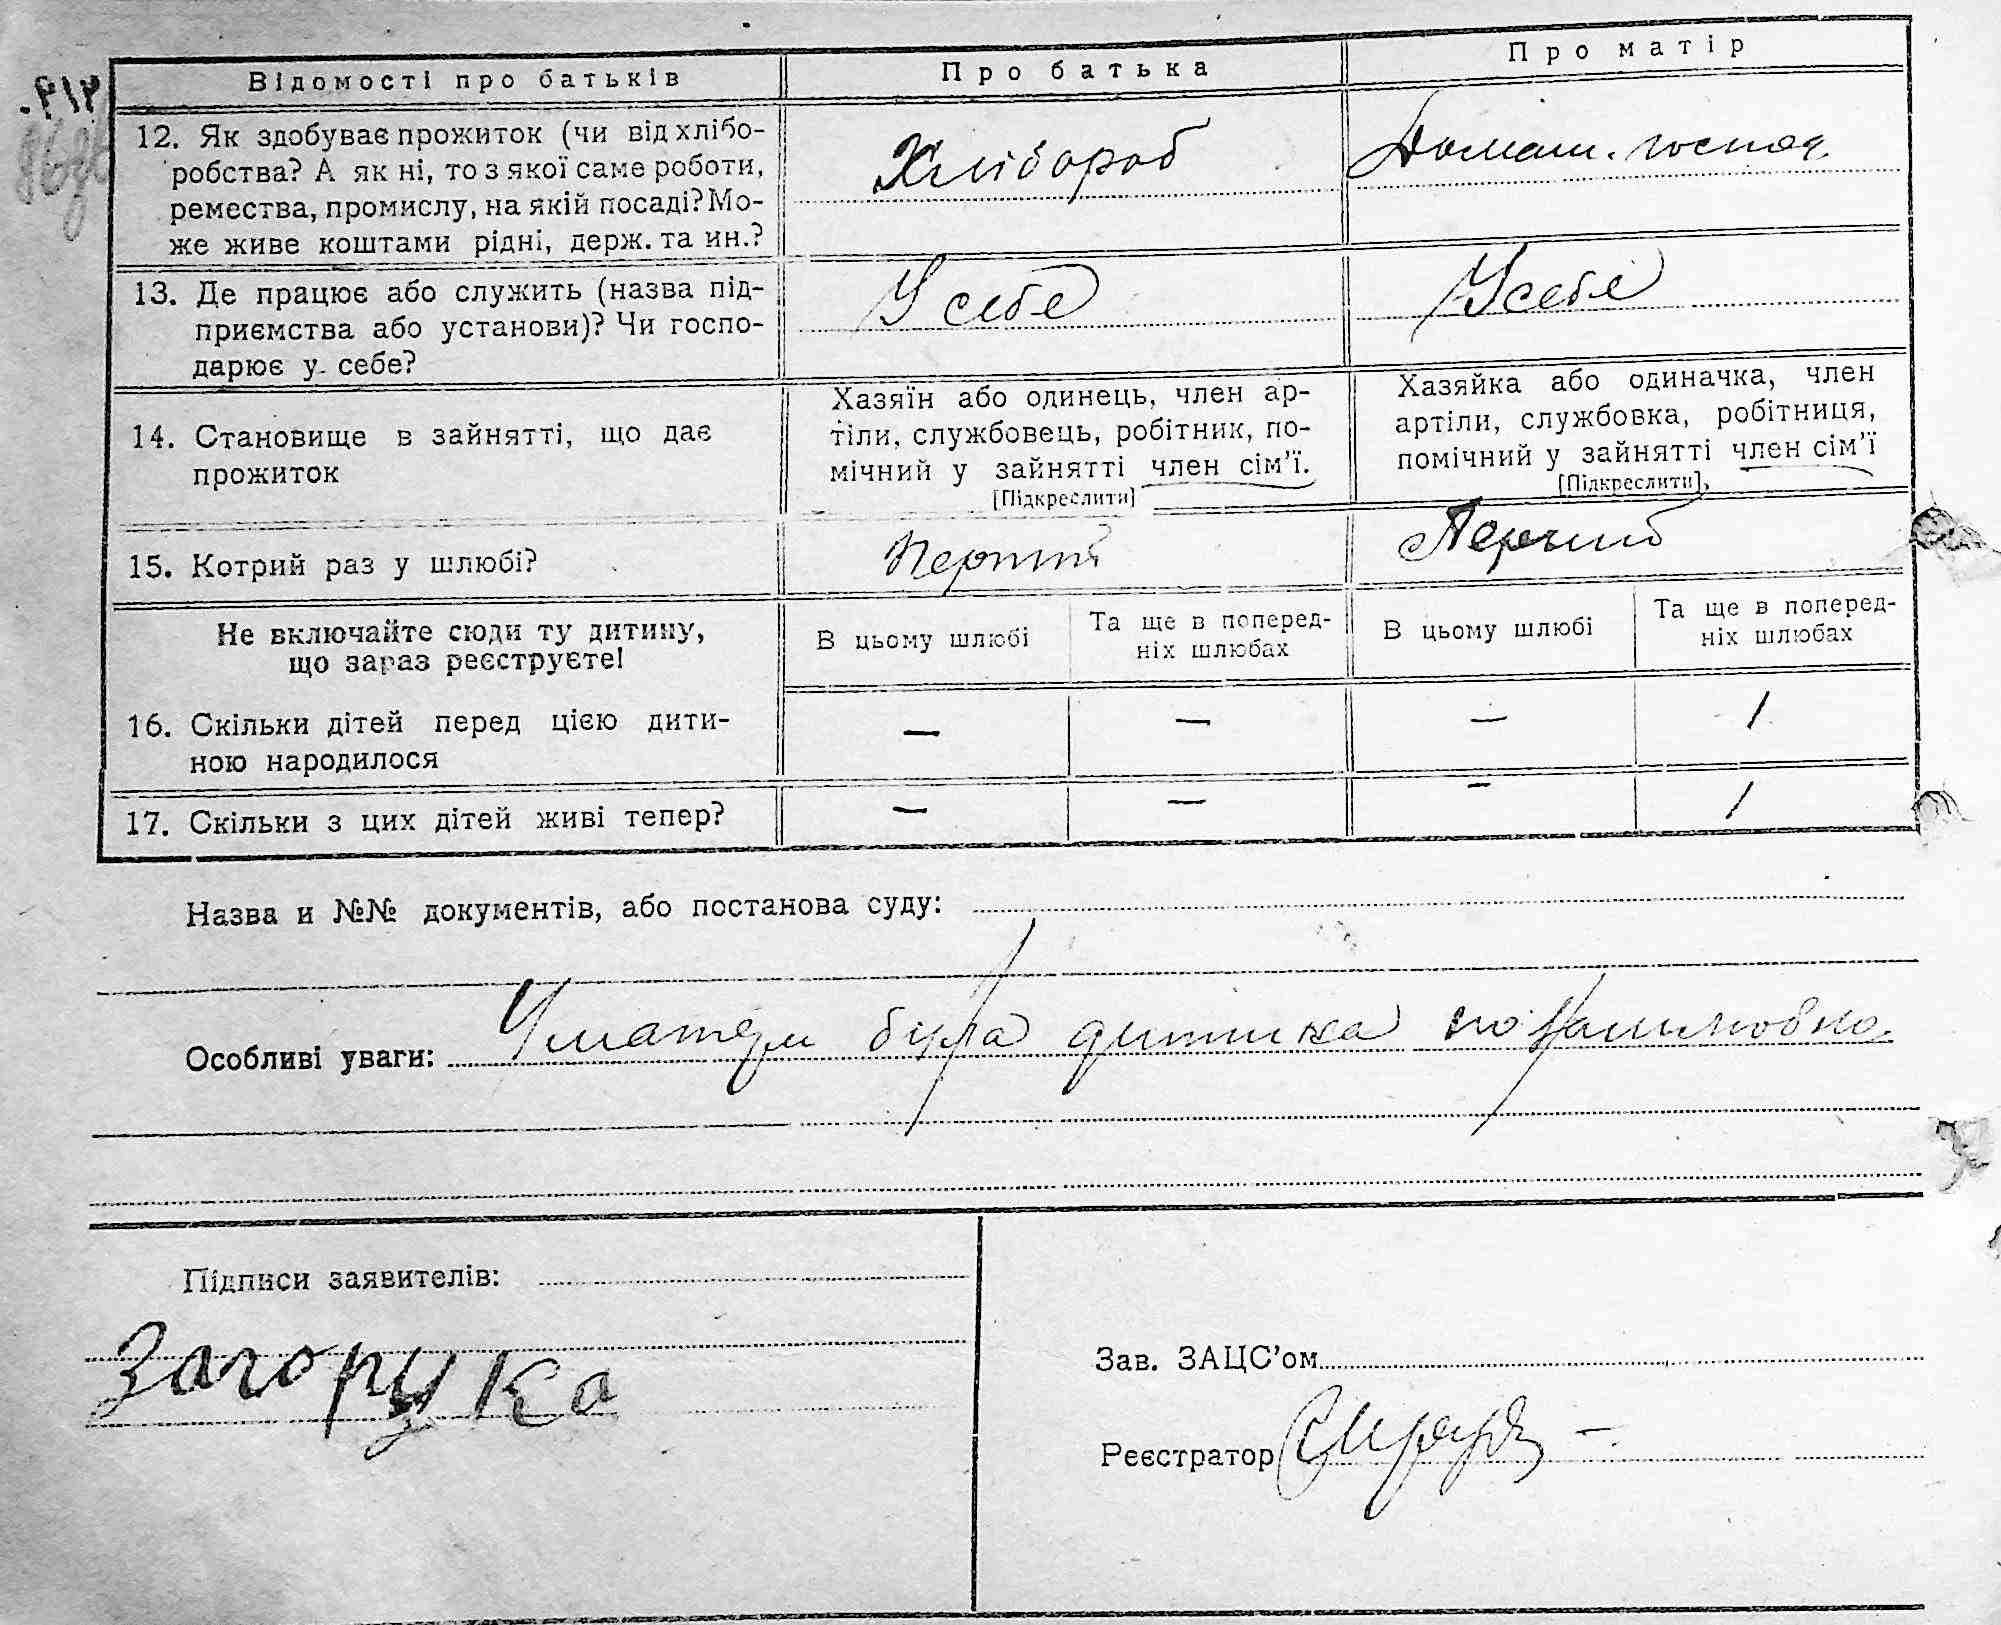 Відомості про батьків
Про батька
Про матір
12. Як здобуває прожиток (чи від хлібо-
робства? А як ні, то з якої саме роботи,
ремества, промислу, на якій посаді? Мо-
же живе коштами рідні, держ. та ин.?
Хлібороб
Домаш. господ.
13. Де працює або служить (назва під-
приємства або установи)? Чи госпо-
дарює у себе?
У себе
У себе
14. Становище в зайнятті, що дає
прожиток
Хазяїн або одинець, член ар-
тіли, службовець, робітник, по-
мічний у зайнятті член сім'ї.
[Підкреслити]
Хазяйка або одиначка, член
артіли, службовка, робітниця,
помічний у зайнятті член сім'ї
[Підкреслити],
15. Котрий раз у шлюбі?
Перший
Перший
Не включайте сюди ту дитину,
що зараз реєструєте!
В цьому шлюбі
Та ще в поперед-
ніх шлюбах
В цьому шлюбі
Та ще в поперед-
ніх шлюбах
16. Скільки дітей перед цією дити-
ною народилося
— — — 1
17. Скільки з цих дітей живі тепер?
— — — 1
Назва и №№ документів, або постанова суду:
Особливі уваги: У матери була дитина
Підписи заявителів:
Загорука
Зав. ЗАЦС'ом
Реєстратор